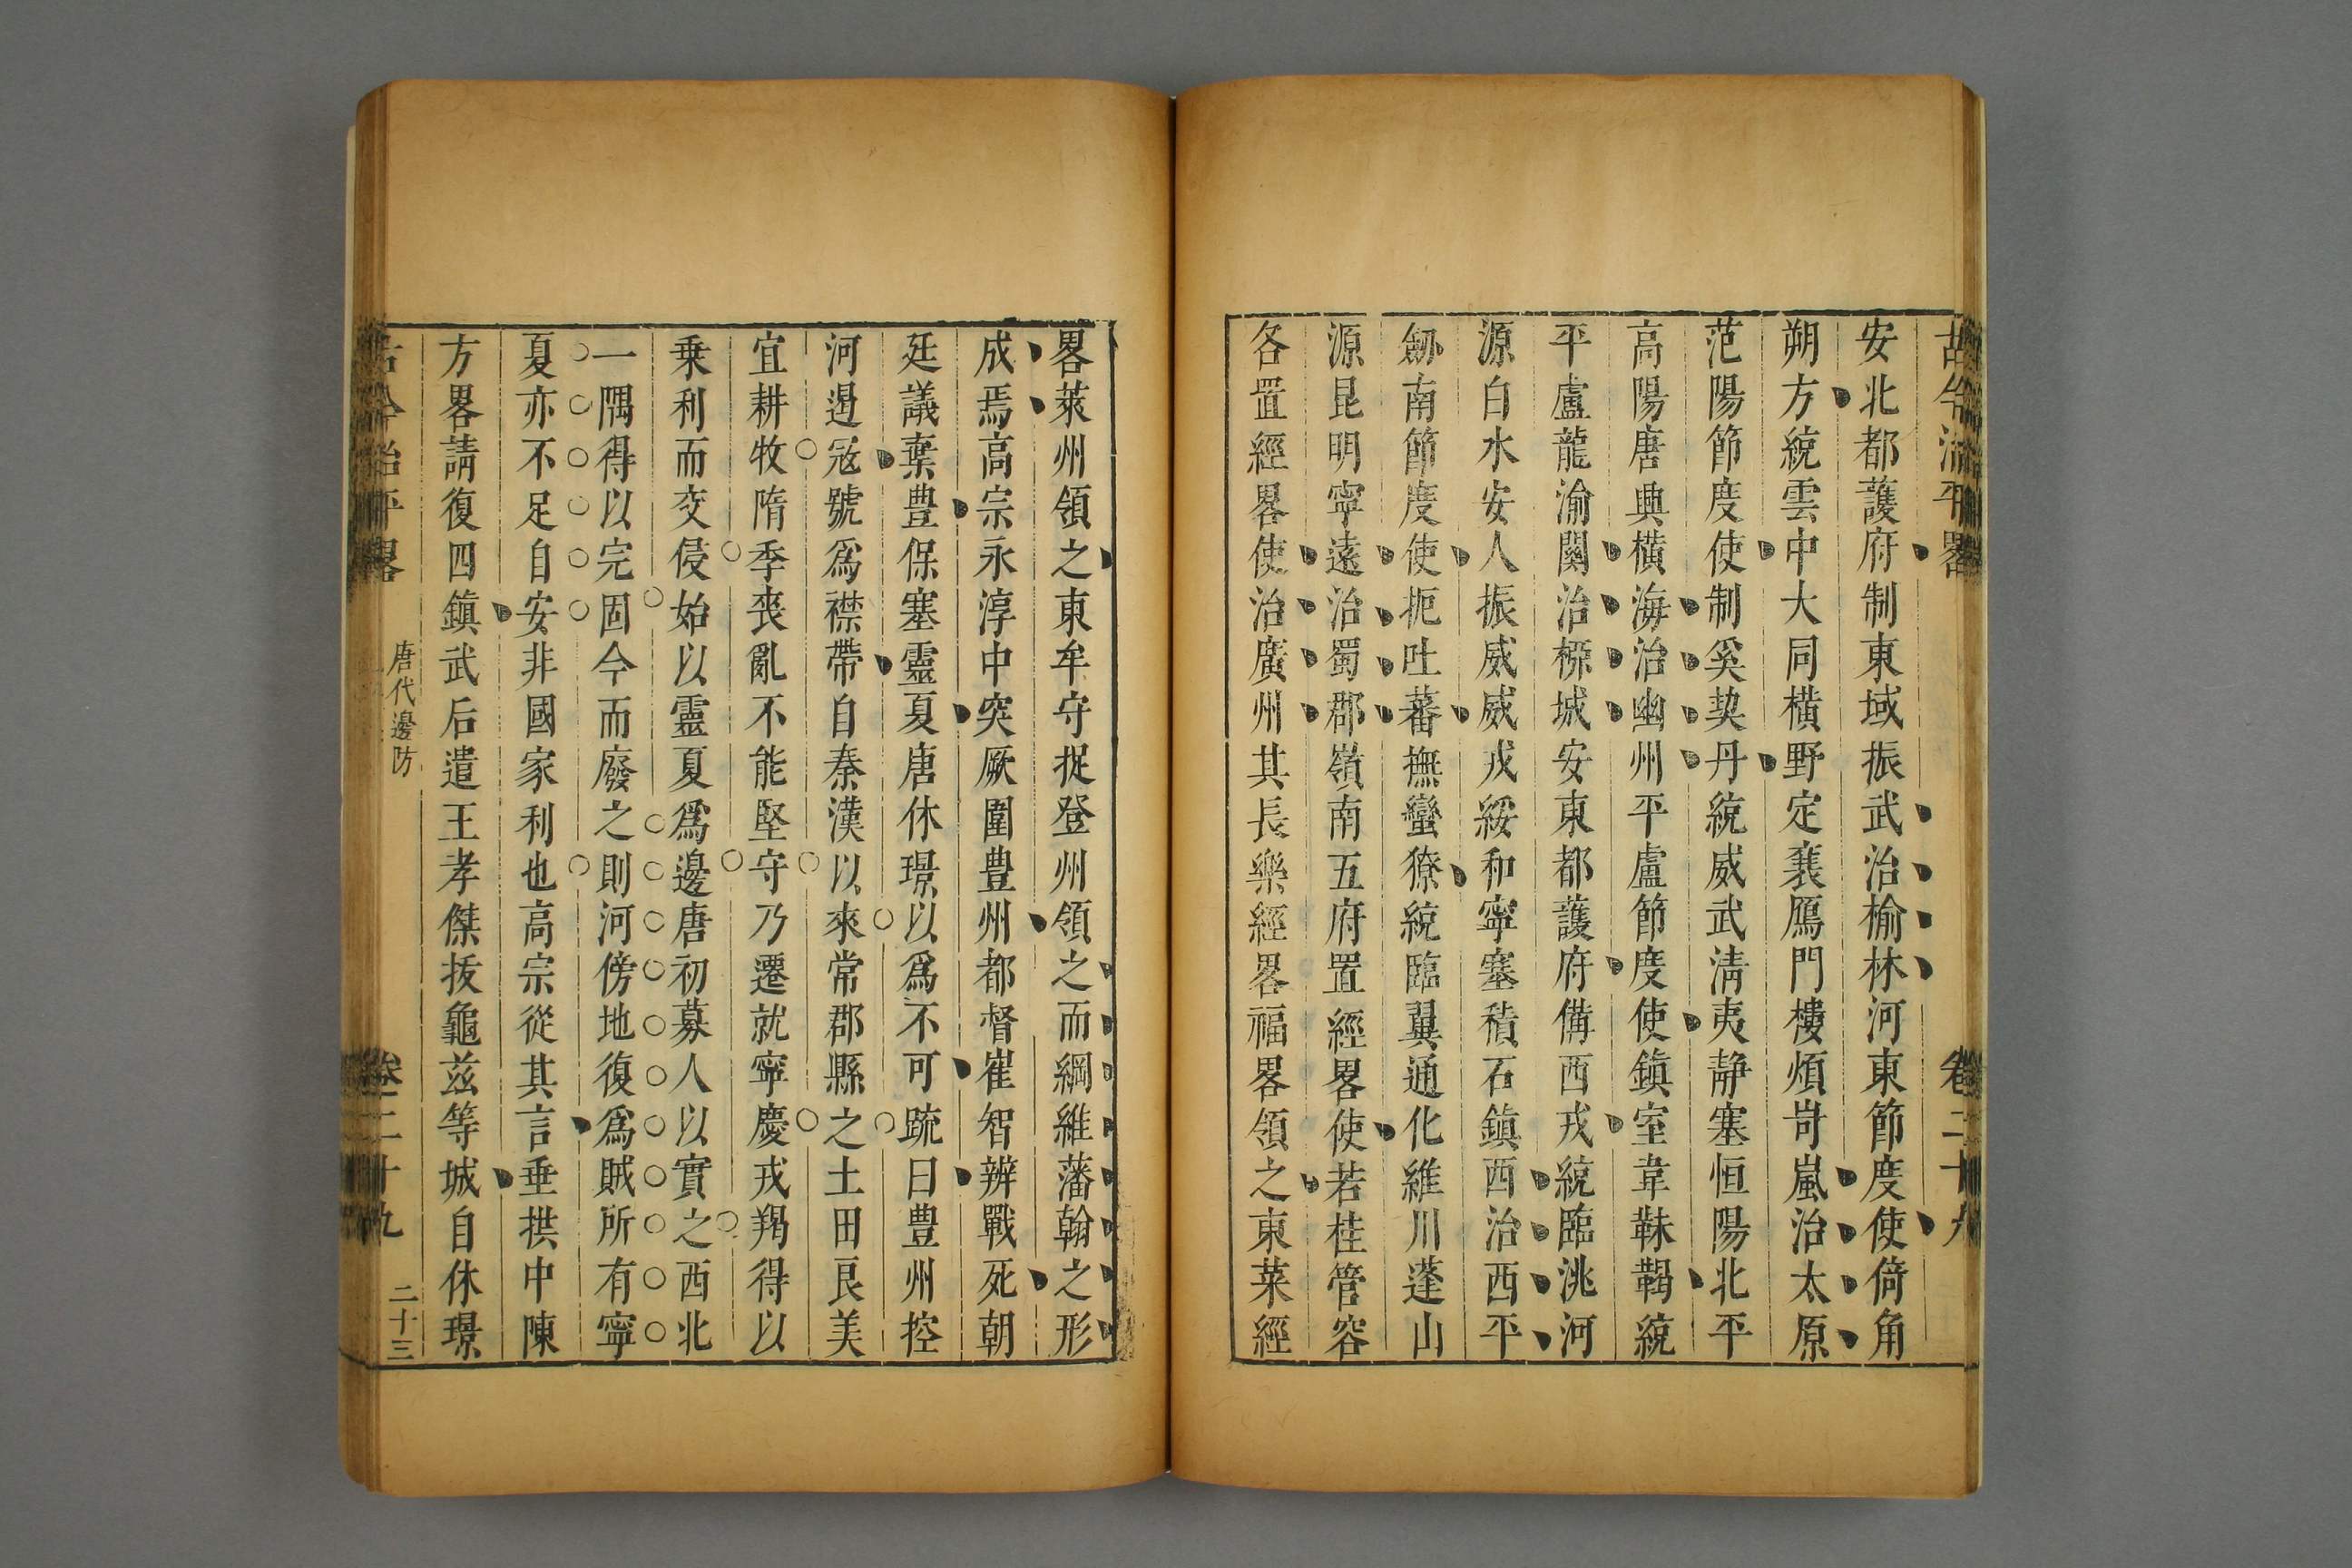 古今治平畧 卷二十九
安北都護府制東域振武治榆林河東節度使倚角
朔方統雲中大同橫野定襄鴈門樓煩岢嵐治太原
范陽節度使制奚契丹統威武清夷靜塞恒陽北平
高陽唐興橫海治幽州平盧節度使鎮室韋靺鞨統
平盧龍渝關治桺城安東都護府備西戎統臨洮河
源白水安人振威威戎綏和寧塞積石鎮西治西平
劒南節度使扼吐蕃撫蠻獠統臨翼通化維川蓬山
源昆明寧遠治蜀郡嶺南五府置經畧使若桂管容
各置經畧使治廣州其長樂經畧福畧領之東萊經
畧萊州領之東牟守捉登州領之而綱維藩翰之形
成焉高宗永淳中突厥圍豊州都督崔智辨戰死朝
廷議棄豊保塞靈夏唐休璟以爲不可疏曰豊州控
河遏寇號爲襟帶自秦漢以來常郡縣之土田良美
宜耕牧隋季喪亂不能堅守乃遷就寧慶戎羯得以
乗利而交侵始以靈夏爲邊唐初募人以實之西北
一隅得以完固今而廢之則河傍地復爲賊所有寧
夏亦不足自安非國家利也高宗從其言垂拱中陳
方畧請復四鎮武后遣王孝傑拔龜玆等城自休璟
古今治平畧 唐代邊防 卷二十九 二十三